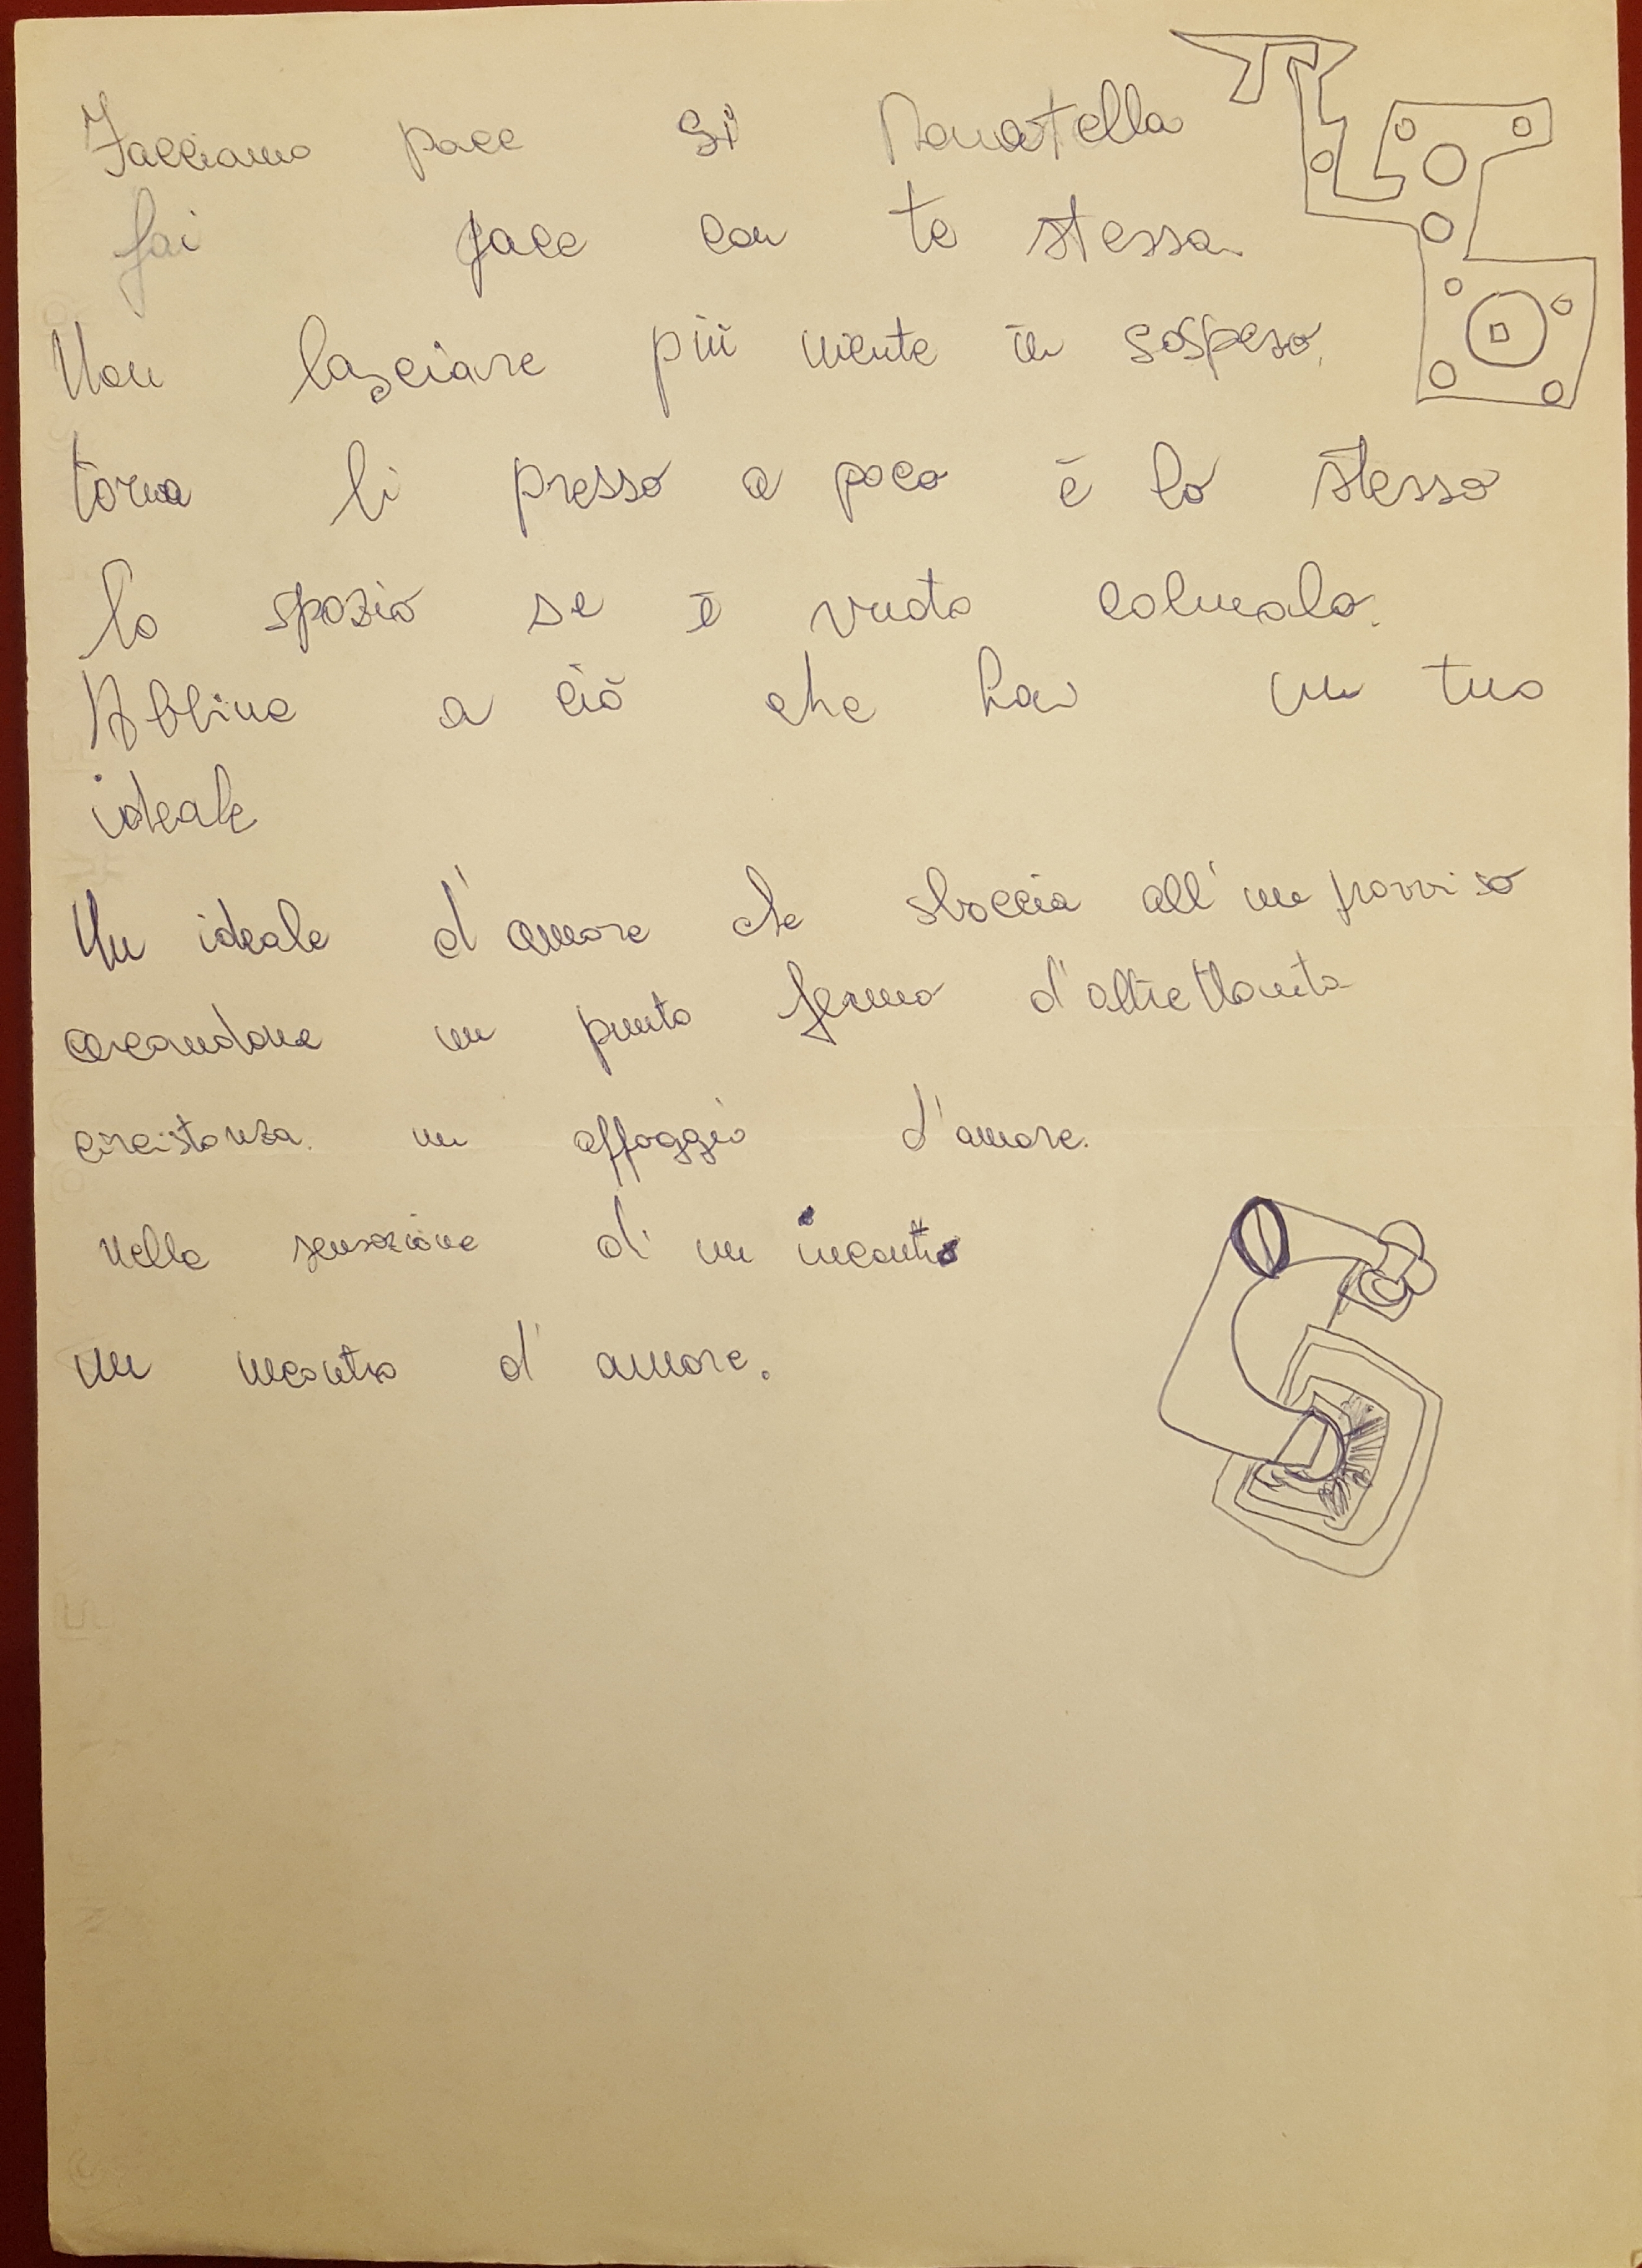 Facciamo pace si Donatella
fai pace con te stessa.
Non lasciare più niente in sospeso.
torna li presso a poco è lo stesso
lo spazio se è vuoto colmalo.
Abbina a ciò che hai un tuo
ideale
Un ideale d'amore che sboccia all'improvviso
creandone un punto fermo d'altrettanta
circistanza. un appoggio d'amore.
nella sensazione di un incontro
un incontro d'amore.